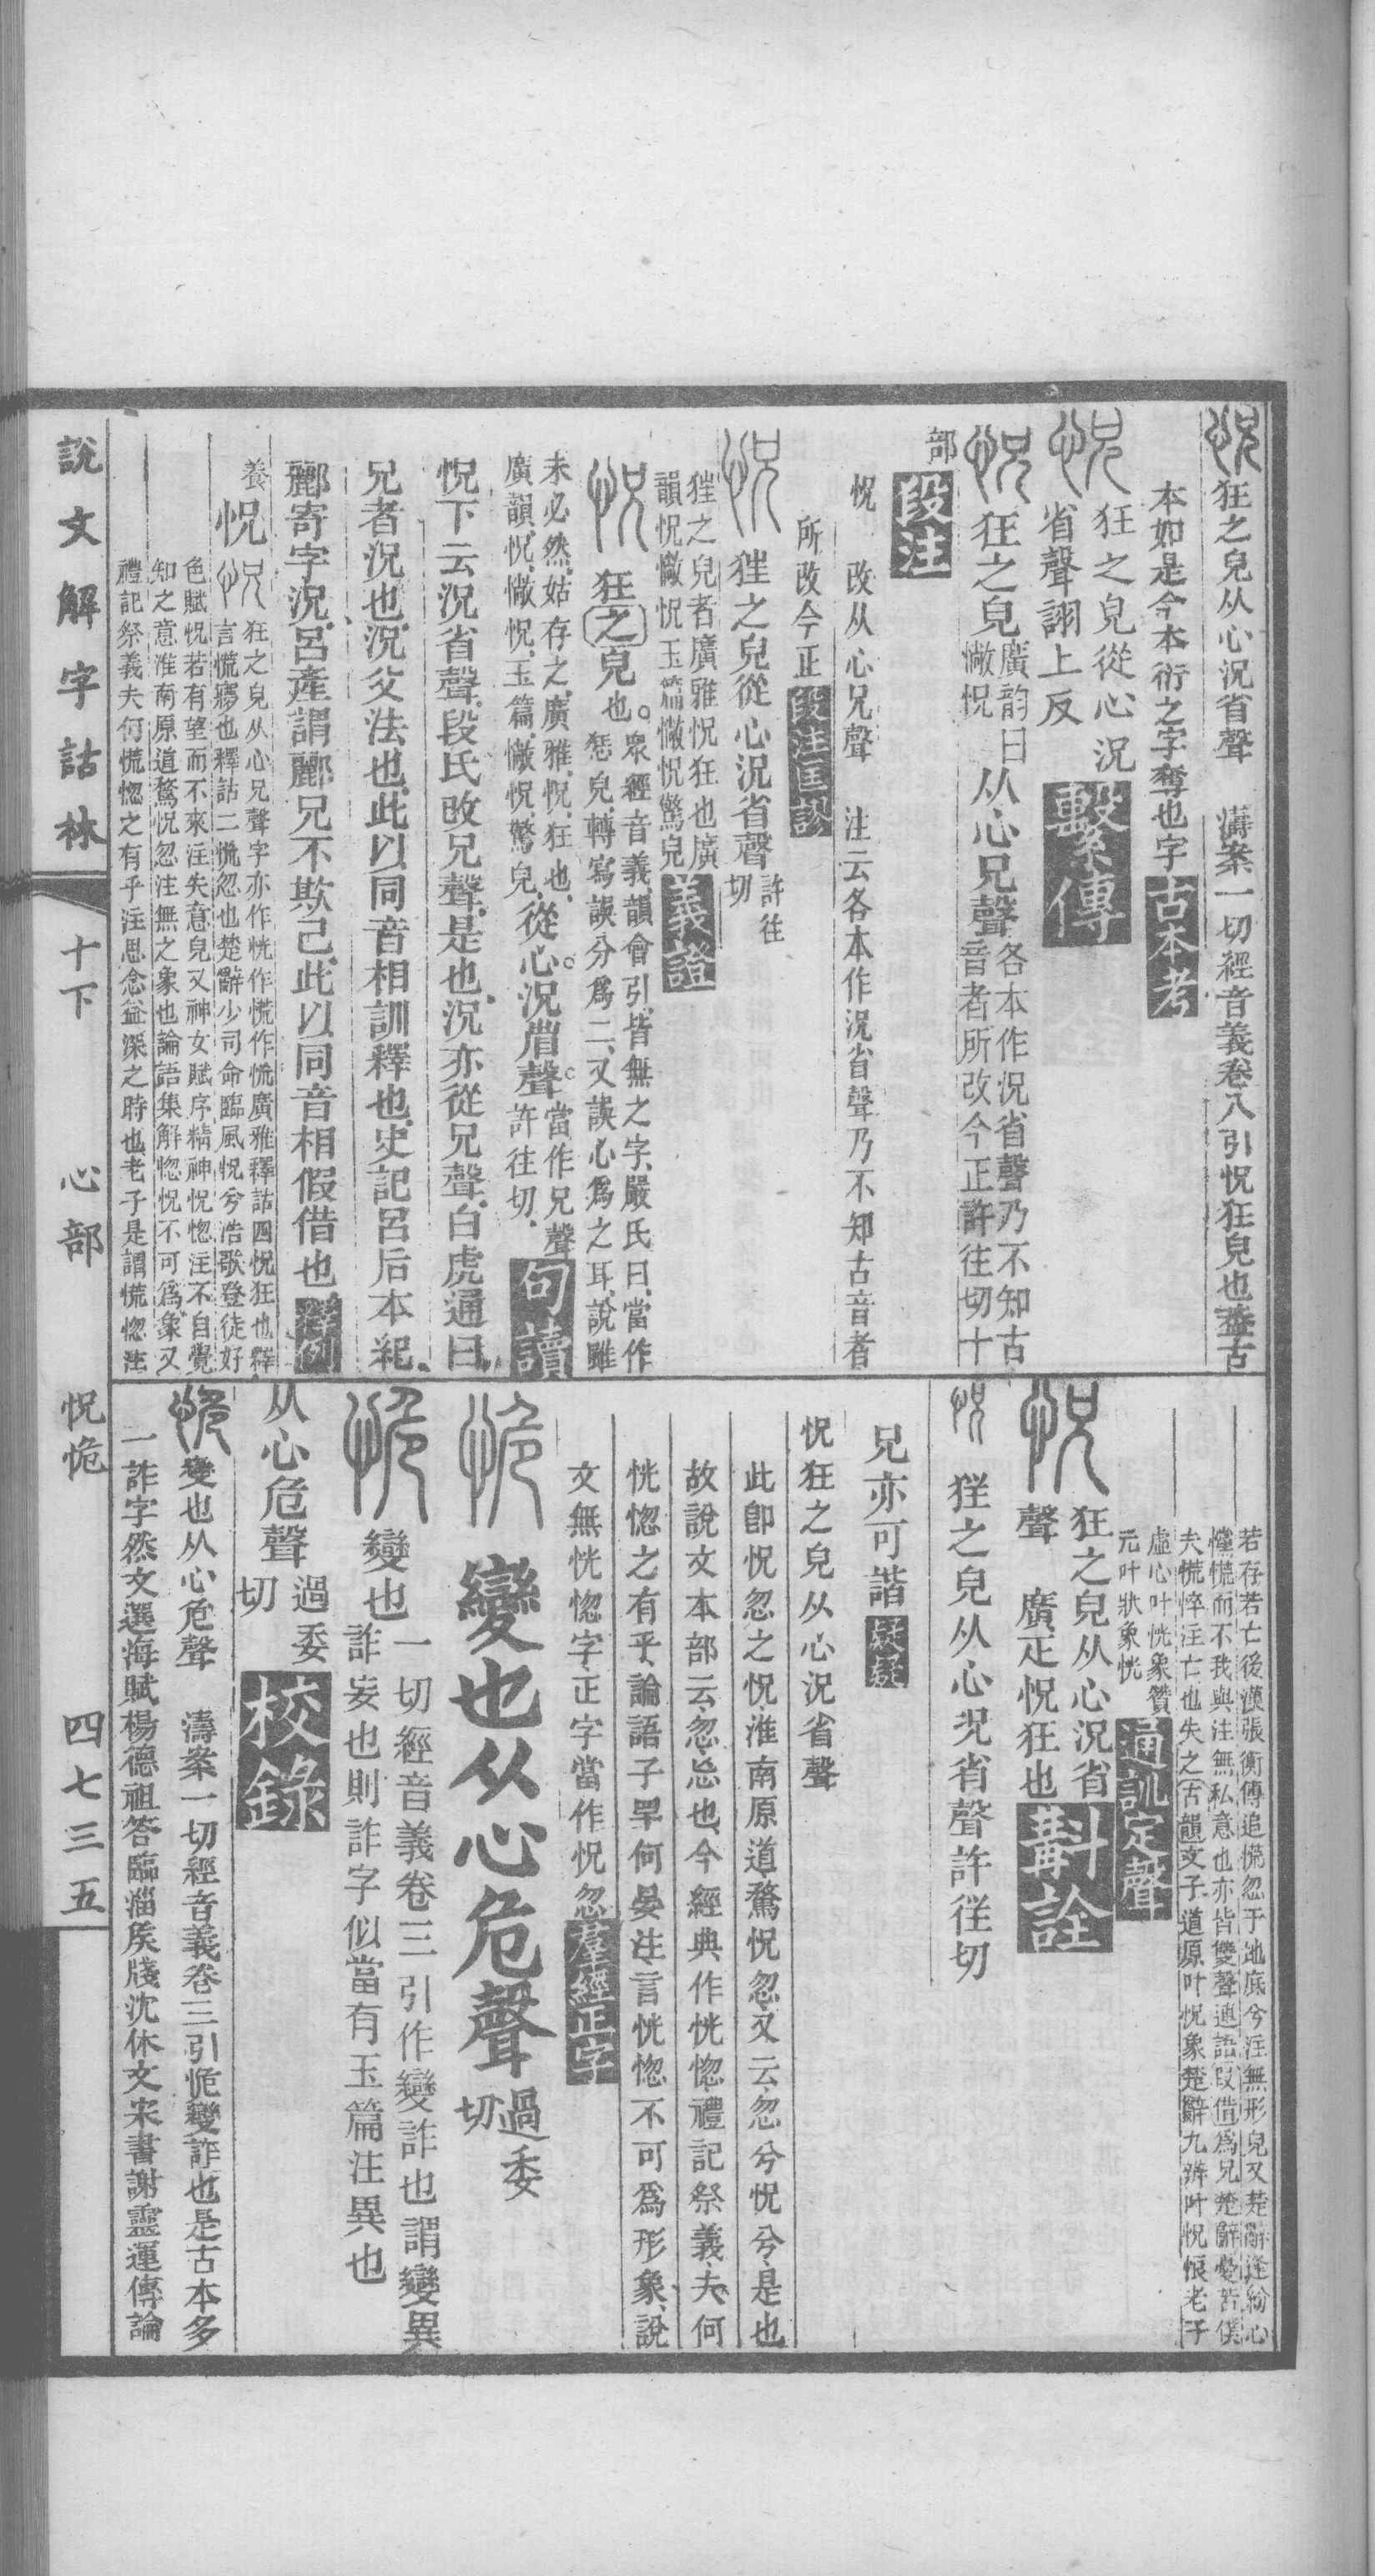 怳狂之皃从心況省聲　濤案一切經音義卷八引怳狂皃也葢古
本如是今本衍之字奪也字古本考
怳狂之皃從心況
省聲詡上反繫傳
怳狂之皃廣韵曰
憿怳从心兄聲各本作況省聲乃不知古
音者所改今正許往切十
部段注
怳　改从心兄聲　注云各本作況省聲乃不知古音者
所改今正段注匡謬
怳狴之皃從心況省聲許往
切
狴之皃者廣雅怳狂也廣
韻怳憿怳玉篇憿怳驚皃義證
怳狂之皃也。眾經音義、韻會引、皆無之字、嚴氏曰、當作
恁皃、轉寫誤分爲二、又誤心爲之耳、說雖
未必然、姑存之、廣雅、怳、狂也、
廣韻、怳、憿怳、玉篇、憿怳、驚皃、從心。況省聲。當作兄聲
許往切、句讀
怳下云況省聲、段氏改兄聲、是也、況亦從兄聲、白虎通曰、
兄者況也、況父法也、此以同音相訓釋也、史記呂后本紀、
酈寄字況、呂產謂酈兄不欺己、此以同音相假借也、釋例
養怳怳狂之皃从心兄聲字亦作恍作慌作㤺廣雅釋詁四怳狂也釋
言慌㝱也釋詁二慌忽也楚辭少司命臨風怳兮浩歌登徒好
色賦怳若有望而不來注失意皃又神女賦序精神怳惚注不自覺
知之意淮南原道驁怳忽注無之象也論語集解惚怳不可爲象又
禮記祭義夫何慌惚之有乎注思念益深之時也老子是謂慌惚注
若存若亡後漢張衡傳追慌忽于地底兮注無形皃又楚辭逢紛心
戃慌而不我與注無私意也亦皆雙聲連語叚借爲兄楚辭憂苦僕
夫慌悴注亡也失之古韻文子道原叶怳象楚辭九辨叶怳悢老子
虛心叶恍象贊
元叶狀象恍通訓定聲
怳狂之皃从心況省
聲　廣疋怳狂也斠詮
怳　狴之皃从心況省聲許往切
兄亦可諧疑疑
怳狂之皃从心況省聲
此卽怳忽之怳、淮南原道、驁怳忽、又云、忽兮怳兮、是也、
故說文本部云、忽、忘也、今經典作恍惚、禮記祭義、夫何
恍惚之有乎、論語子罕何晏注、言恍惚不可爲形象、說
文無恍惚字、正字當作怳忽、羣經正字
恑變也从心危聲過委
切
恑變也一切經音義卷三引作變詐也謂變異
詐妄也則詐字似當有玉篇注異也
从心危聲過委
切校錄
恑變也从心危聲　濤案一切經音義卷三引恑變詐也是古本多
一詐字然文選海賦楊德祖答臨淄矦牋沈休文宋書謝靈運傳論
說文解字詁林　十下　心部　怳恑　四七三五